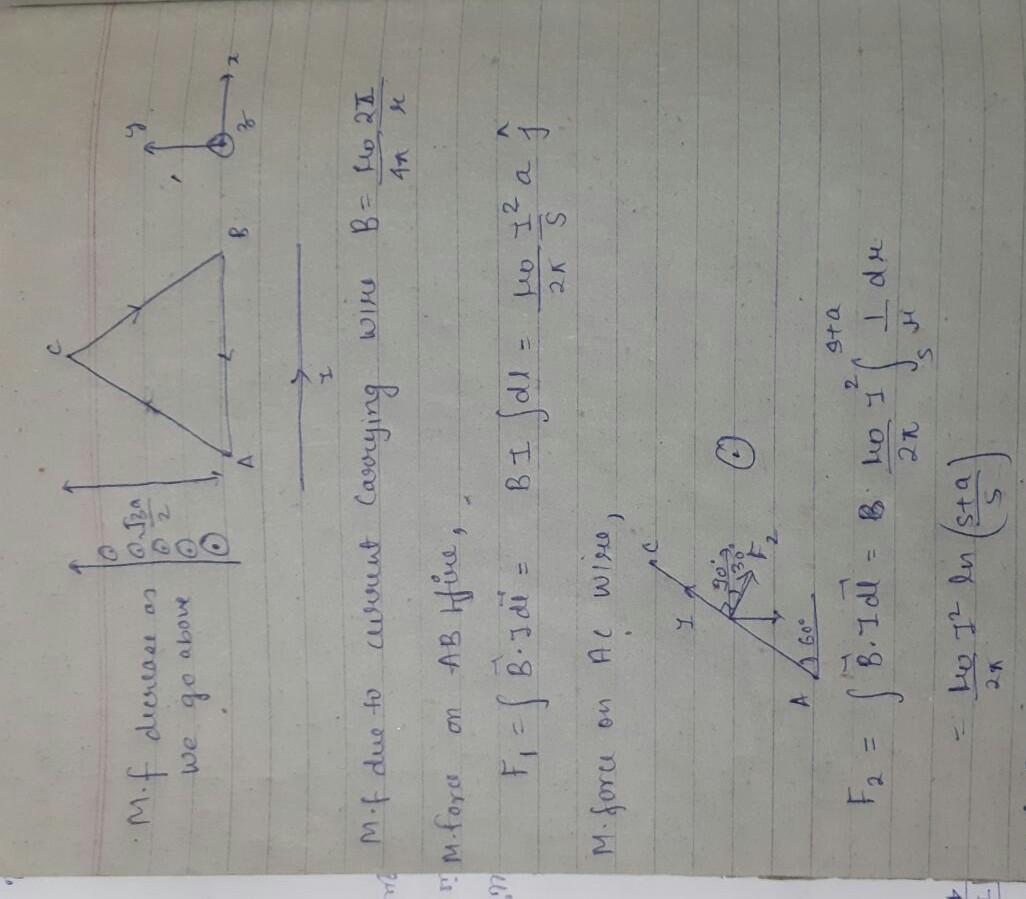 C
y
M.f decrease as
√3a/2
we go above
A
B
z
x
I
M.f due to current carrying wire B = μ0/4π 2I/r
M.force on AB wire,
F1 = ∫ B⃗·I dl⃗ = BI ∫dl = μ0/2π I²/s a ĵ
M.force on AC wire,
I
C
90°
30°
F2
A
60°
F2 = ∫ B⃗·I dl⃗ = B· μ0/2π I² ∫_s^{s+a} 1/r dr
= μ0/2π I² ln (s+a/s)